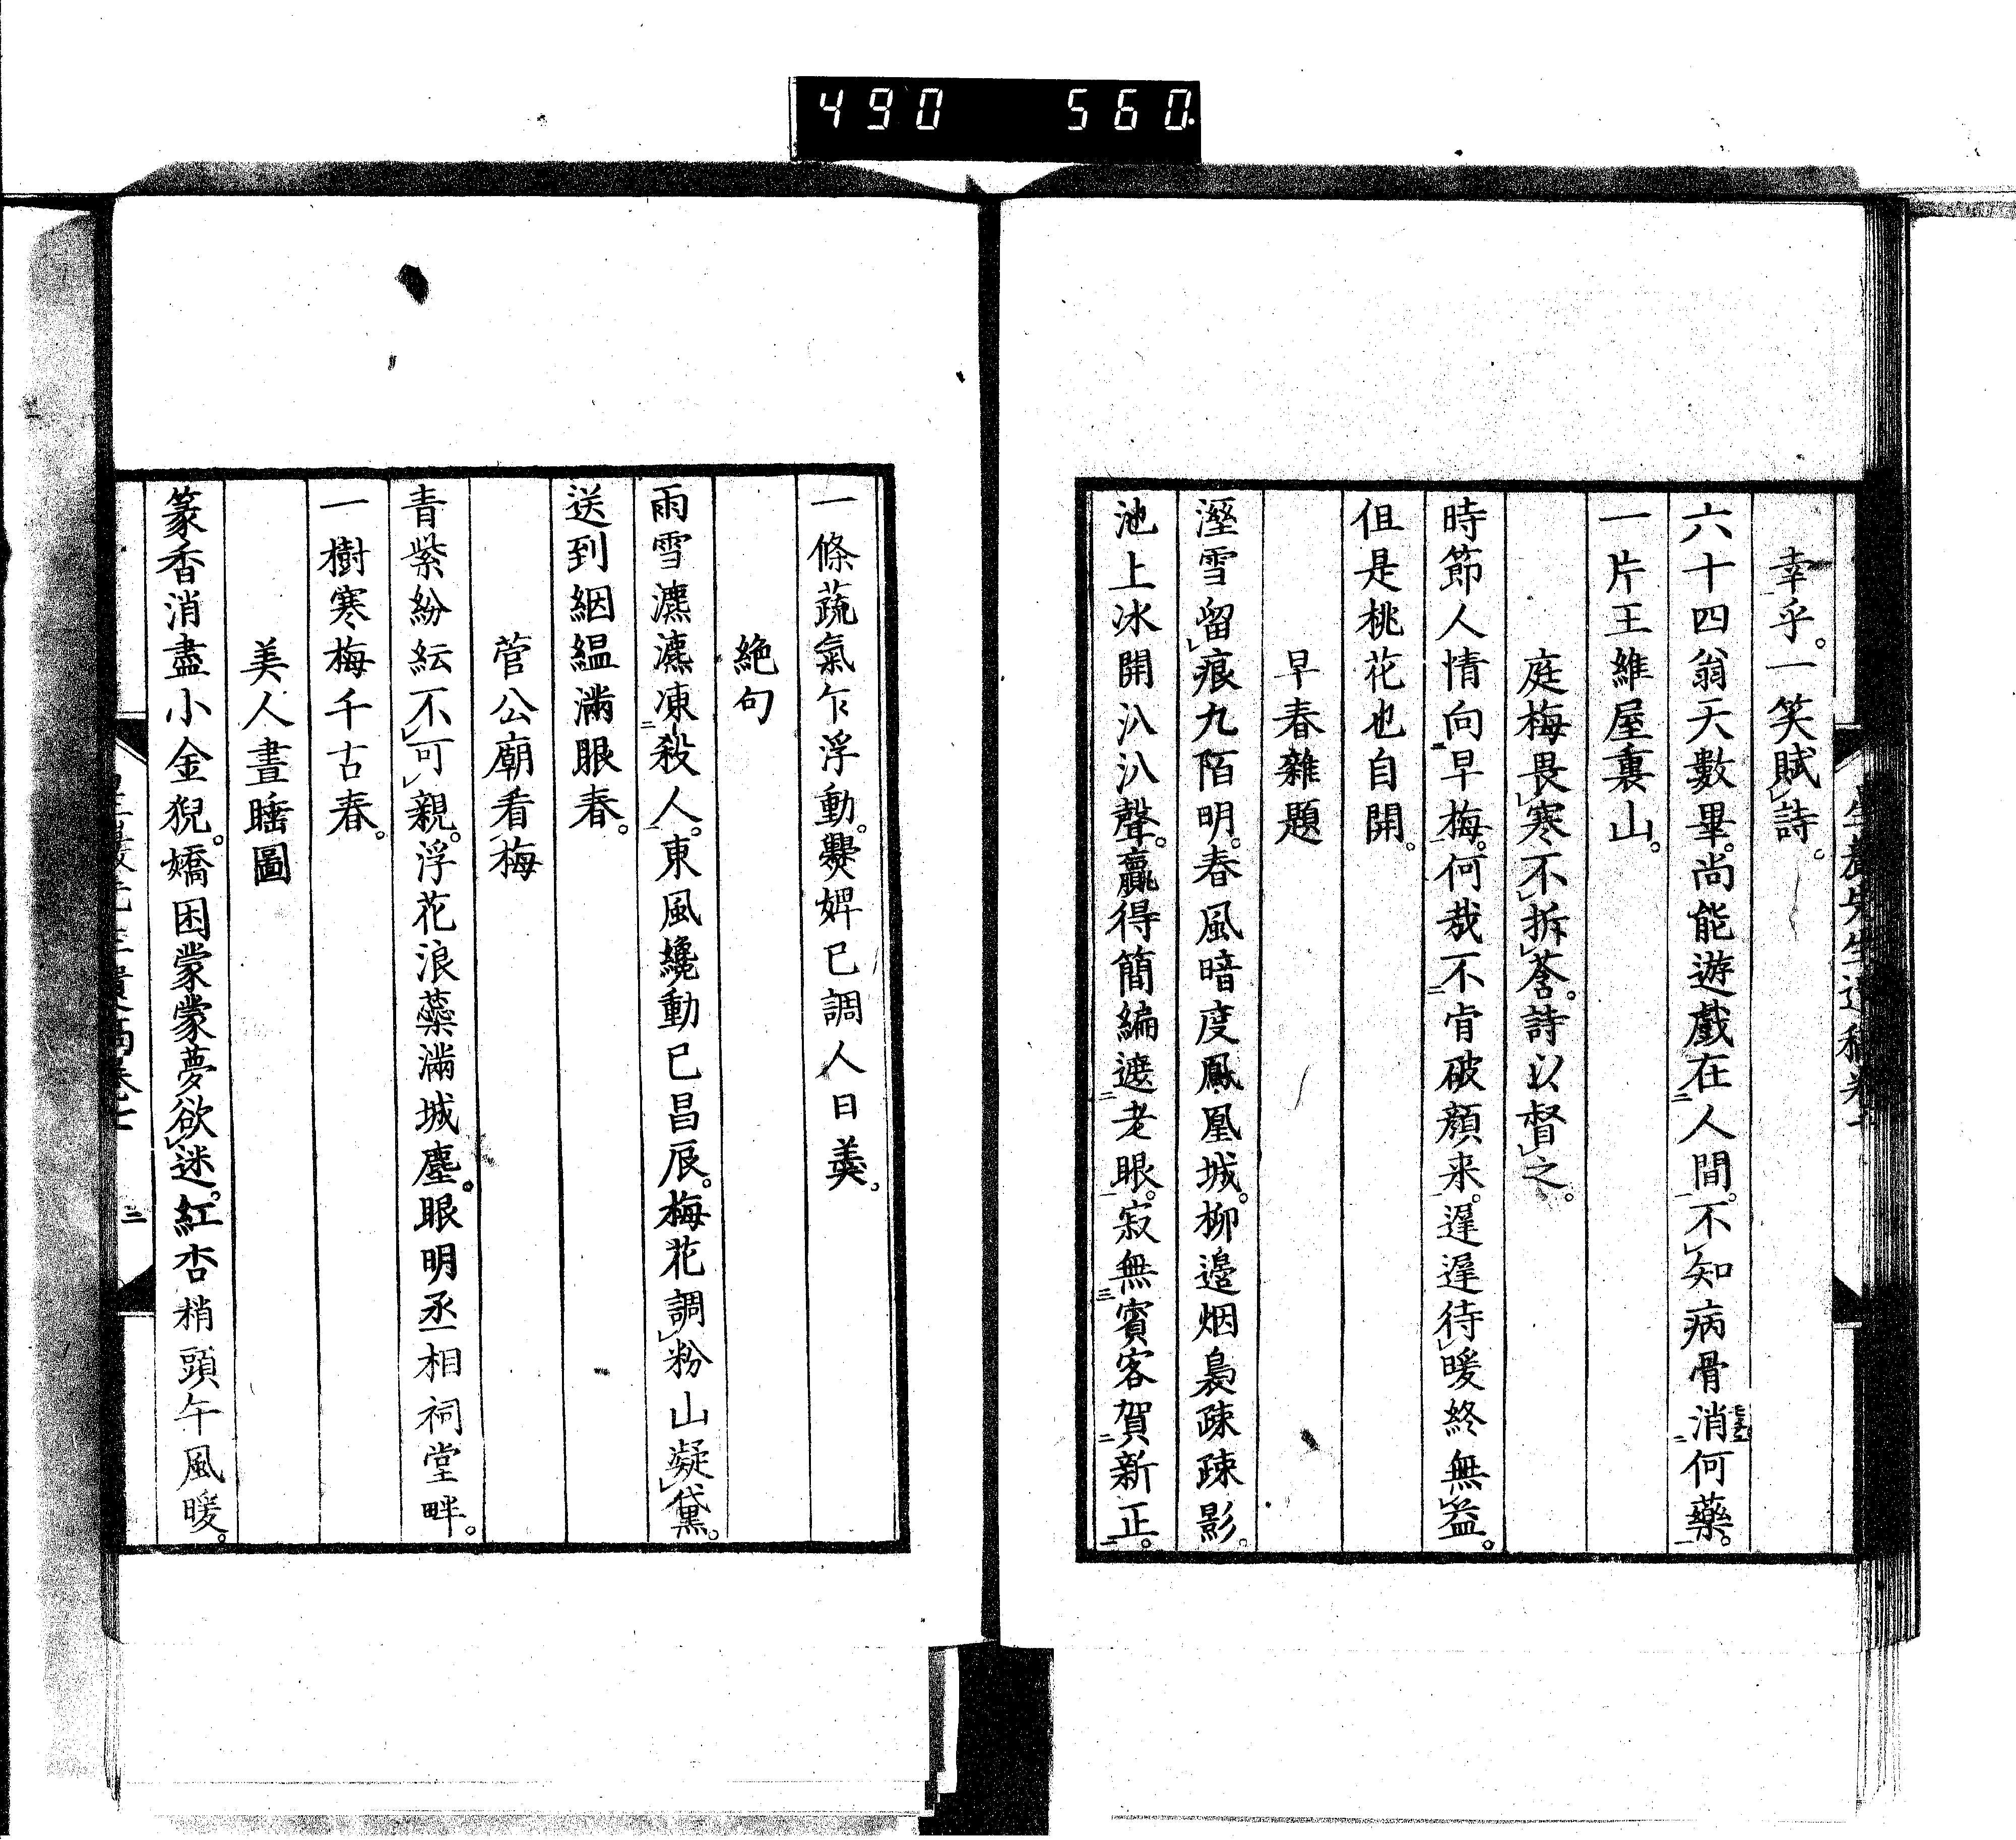 490 560.
幸乎。一笑賦詩。
六十四翁天數畢。尚能遊戲在人間。不知病骨消何藥。
一片王維屋裏山。
庭梅畏寒不拆蕾。詩以督之。
時節人情向早梅。何哉不肯破顏来。遲遲待暖終無益。
但是桃花也自開。
早春雜題
溼雪留痕九陌明。春風暗度鳳凰城。柳邉烟裊疎疎影。
池上冰開汃汃聲。贏得簡編遮老眼。寂無賓客賀新正。
一條蔬氣乍浮動。爨婢已調人日羹。
絶句
雨雪瀌瀌凍殺人。東風纔動已昌辰。梅花調粉山凝黛。
送到絪縕滿眼春。
菅公廟看梅
青紫紛紜不可親。浮花浪蘂滿城塵。眼明丞相祠堂畔。
一樹寒梅千古春。
美人晝睡圖
篆香消盡小金猊。嬌困蒙蒙夢欲迷。紅杏梢頭午風暖。
三